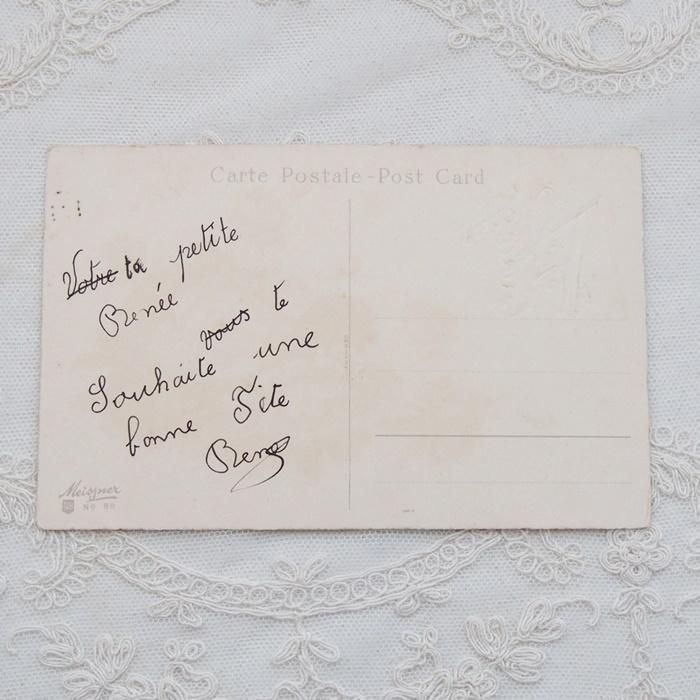 Carte Postale-Post Card
Votre ta petite
Renée
vous te
Souhaite une
bonne Fête
René
Meissner
No 88